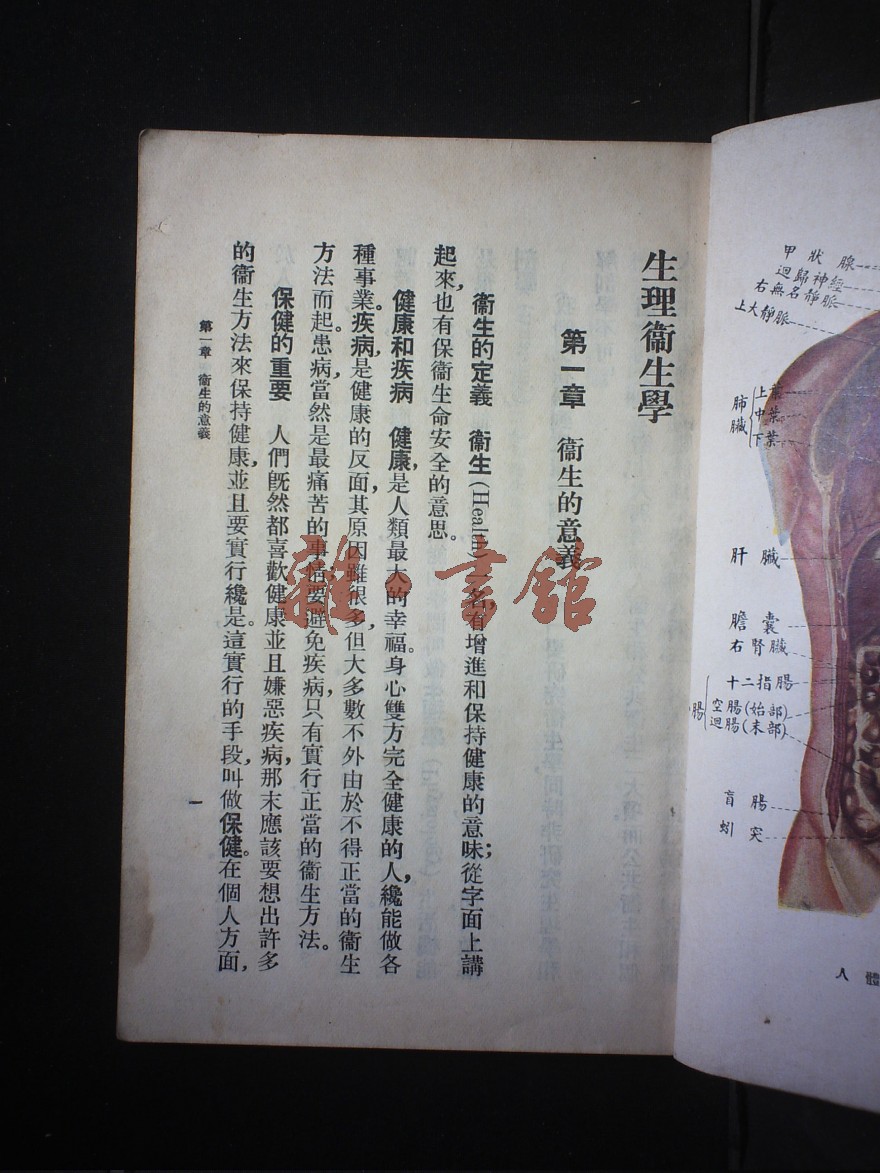 生理衞生學
第一章　衞生的意義
衞生的定義　衞生(Health)一名,有增進和保持健康的意味;從字面上講
起來,也有保衞生命安全的意思。
健康和疾病　健康,是人類最大的幸福。身心雙方完全健康的人,纔能做各
種事業。疾病,是健康的反面,其原因雖很多,但大多數不外由於不得正當的衞生
方法而起。患病當然是最痛苦的事情,要避免疾病,只有實行正當的衞生方法。
保健的重要　人們旣然都喜歡健康,並且嫌惡疾病,那末應該要想出許多
的衞生方法來保持健康,並且要實行纔是。這實行的手段,叫做保健。在個人方面,
第一章　衞生的意義
一
甲狀腺
迴歸神經
右無名靜脈
上大靜脈
肺臟
上葉
中葉
下葉
肝臟
膽囊
右腎臟
十二指腸
腸
空腸(始部)
迴腸(末部)
盲腸
蚓突
人體
雜·書館